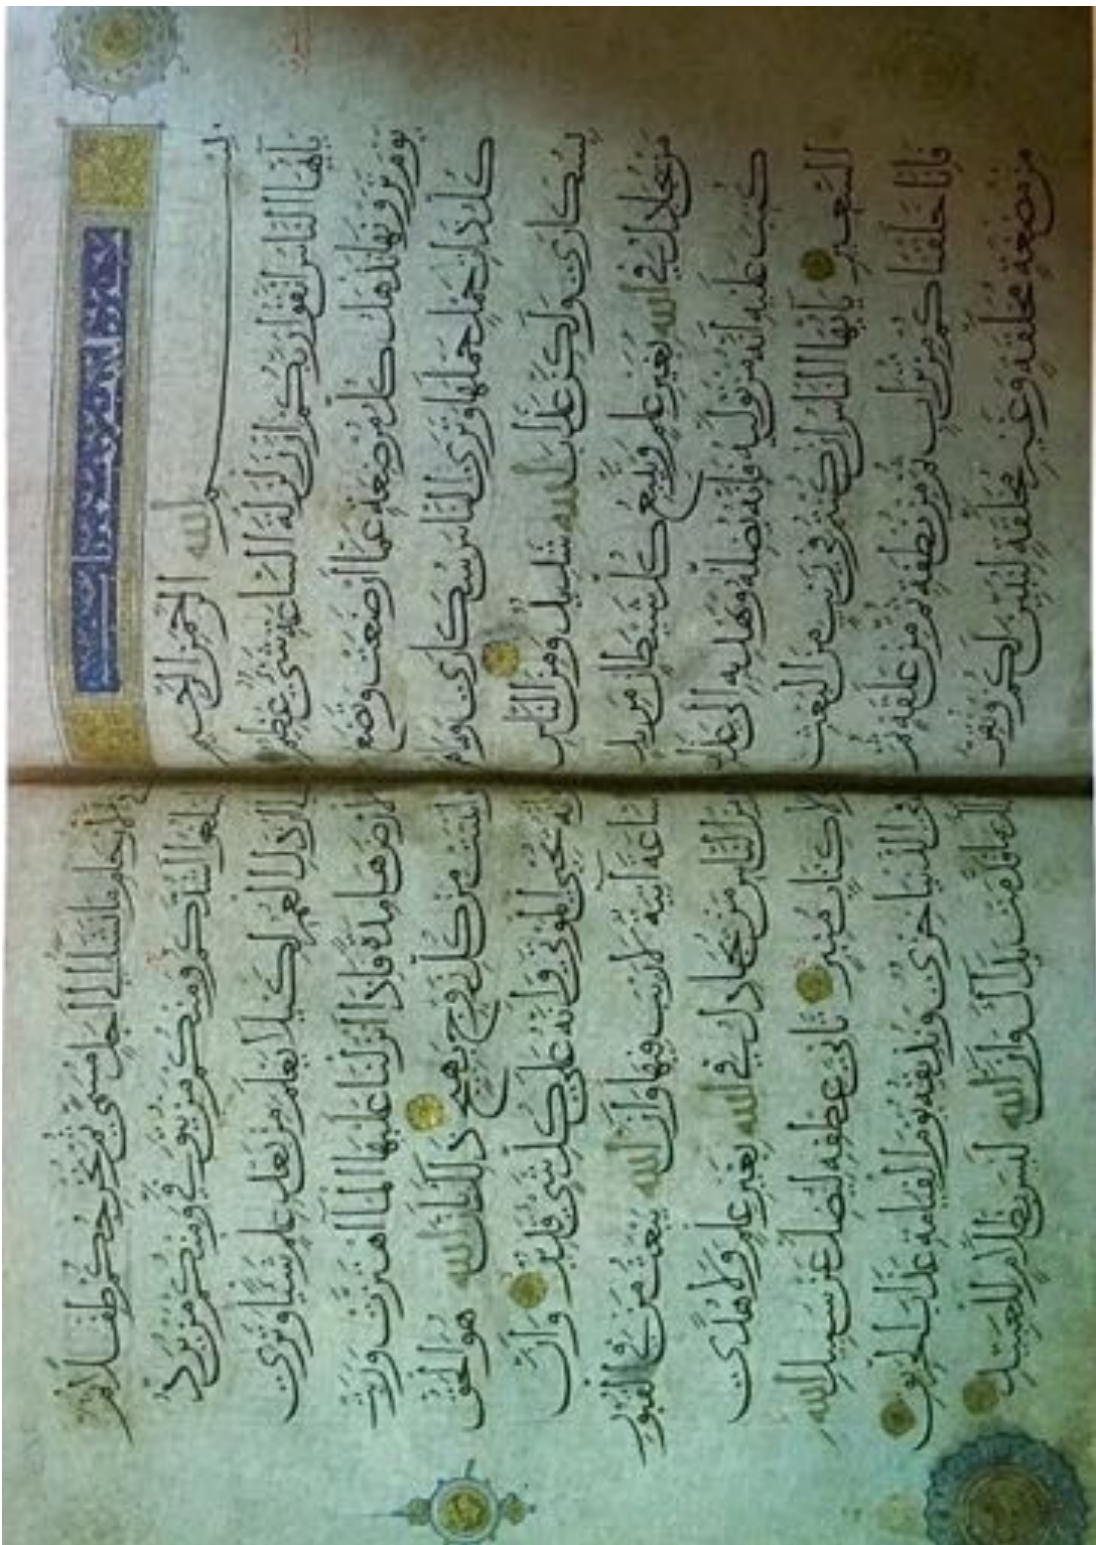 بسم الله الرحمن الرحيم
يا أيها الناس اتقوا ربكم إن زلزلة الساعة شيء عظيم
يوم ترونها تذهل كل مرضعة عما أرضعت وتضع
كل ذات حمل حملها وترى الناس سكارى وما هم
بسكارى ولكن عذاب الله شديد ومن الناس
من يجادل في الله بغير علم ويتبع كل شيطان مريد
كتب عليه أنه من تولاه فأنه يضله ويهديه إلى عذاب
السعير يا أيها الناس إن كنتم في ريب من البعث
فإنا خلقناكم من تراب ثم من نطفة ثم من علقة ثم
من مضغة مخلقة وغير مخلقة لنبين لكم ونقر
في الأرحام ما نشاء إلى أجل مسمى ثم نخرجكم طفلا ثم
لتبلغوا أشدكم ومنكم من يتوفى ومنكم من يرد
إلى أرذل العمر لكيلا يعلم من بعد علم شيئا وترى
الأرض هامدة فإذا أنزلنا عليها الماء اهتزت وربت
وأنبتت من كل زوج بهيج ذلك بأن الله هو الحق
وأنه يحيي الموتى وأنه على كل شيء قدير وأن
الساعة آتية لا ريب فيها وأن الله يبعث من في القبور
ومن الناس من يجادل في الله بغير علم ولا هدى
ولا كتاب منير ثاني عطفه ليضل عن سبيل الله
له في الدنيا خزي ونذيقه يوم القيامة عذاب الحريق
ذلك بما قدمت يداك وأن الله ليس بظلام للعبيد